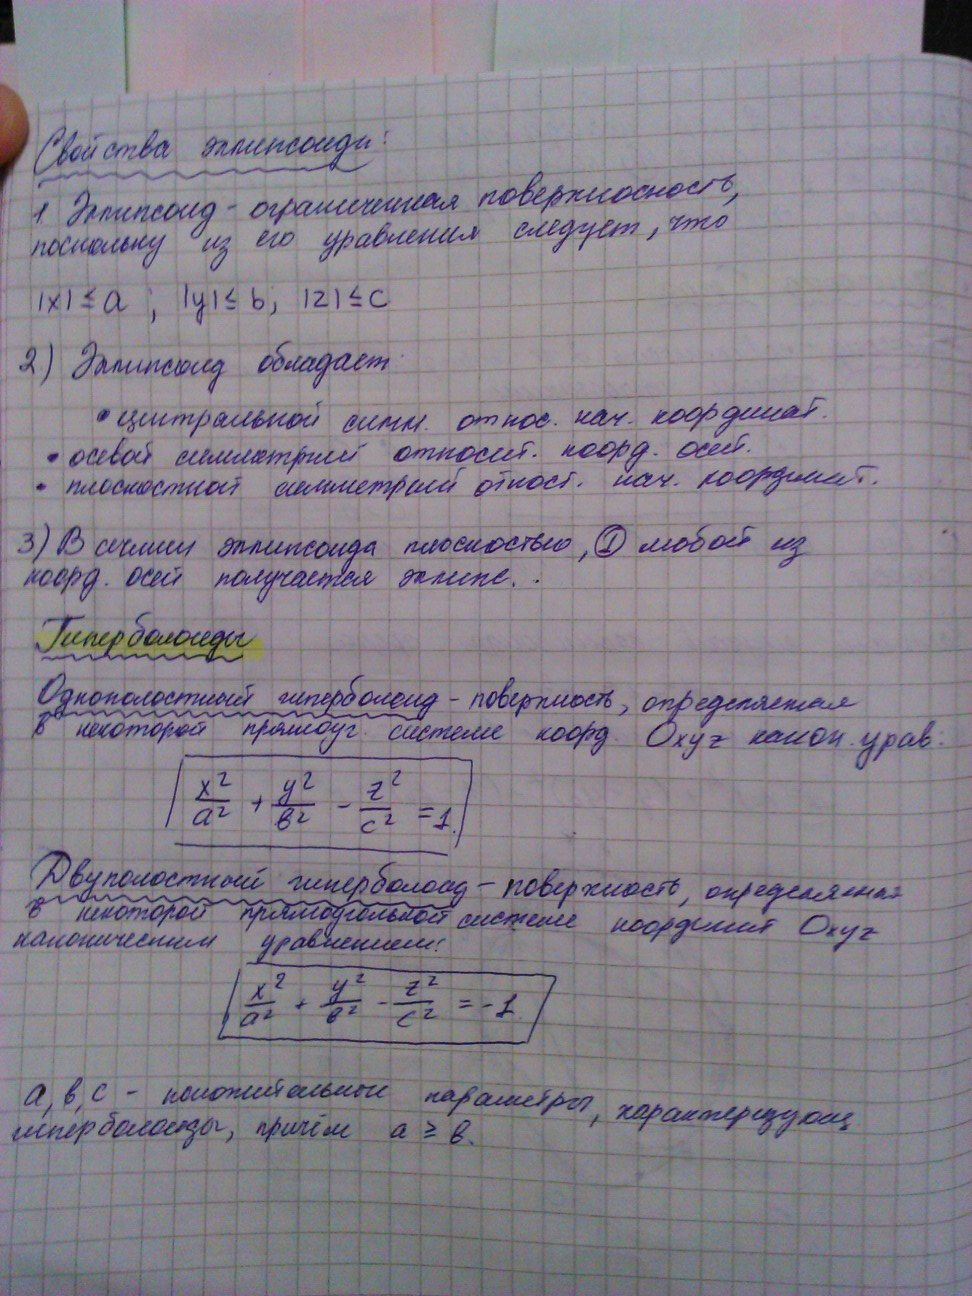 Свойства эллипсоиды:
1 Эллипсоид - ограниченная поверхносность,
поскольку из его уравнения следует, что
|x| ≤ a ; |y| ≤ b; |z| ≤ c
2) Эллипсоид обладает
• центральной симм. относ. нач. координат.
• осевой симметрией относит. коорд. осей.
• плоскостной симметрией относ. нач. координат.
3) В сечении эллипсоида плоскостью, ⊥ любой из
коорд. осей получается эллипс.
Гиперболоиды
Однополостный гиперболоид - поверхность, определяемая
в некоторой прямоуг. системе коорд. Oxyz канон. урав.
x²/a² + y²/b² - z²/c² = 1.
Двуполостный гиперболоид - поверхность, определяемая
в некоторой прямоугольной системе координат Oxyz
каноническим уравнением:
x²/a² + y²/b² - z²/c² = -1.
a, b, c - положительные параметры, характеризующ
гиперболоиды, причём a ≥ b.